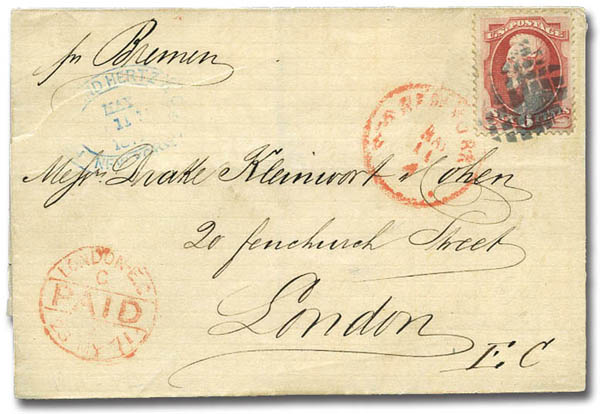 pr Bremen
U.S. POSTAGE
HERTZ
MAY
11
NEW YORK
NEW YORK
MAY
11
Messrs Drake Kleinwort & Cohen
20 fenchurch Street
London
E. C
LONDON E.C
C
PAID